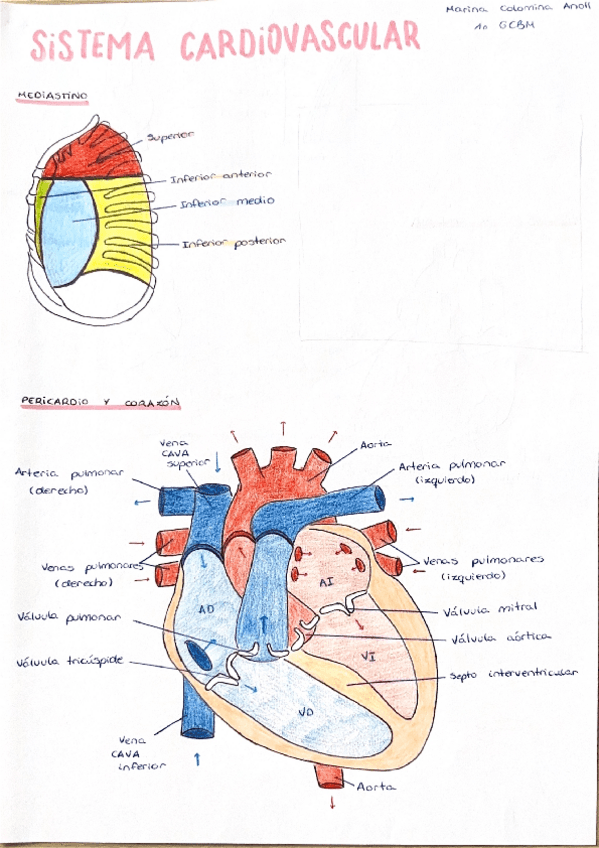 Marina Colomina Anoll
1o GCBM
SISTEMA CARDIOVASCULAR
MEDIASTINO
Superior
Inferior anterior
Inferior medio
Inferior posterior
PERICARDIO Y CORAZÓN
Vena
CAVA
superior
Aorta
Arteria pulmonar
(derecho)
Arteria pulmonar
(izquierdo)
Venas pulmonares
(derecho)
Venas pulmonares
(izquierdo)
AI
AD
Válvula pulmonar
Válvula mitral
Válvula aórtica
VI
Válvula tricúspide
Septo interventricular
VD
Vena
CAVA
inferior
Aorta